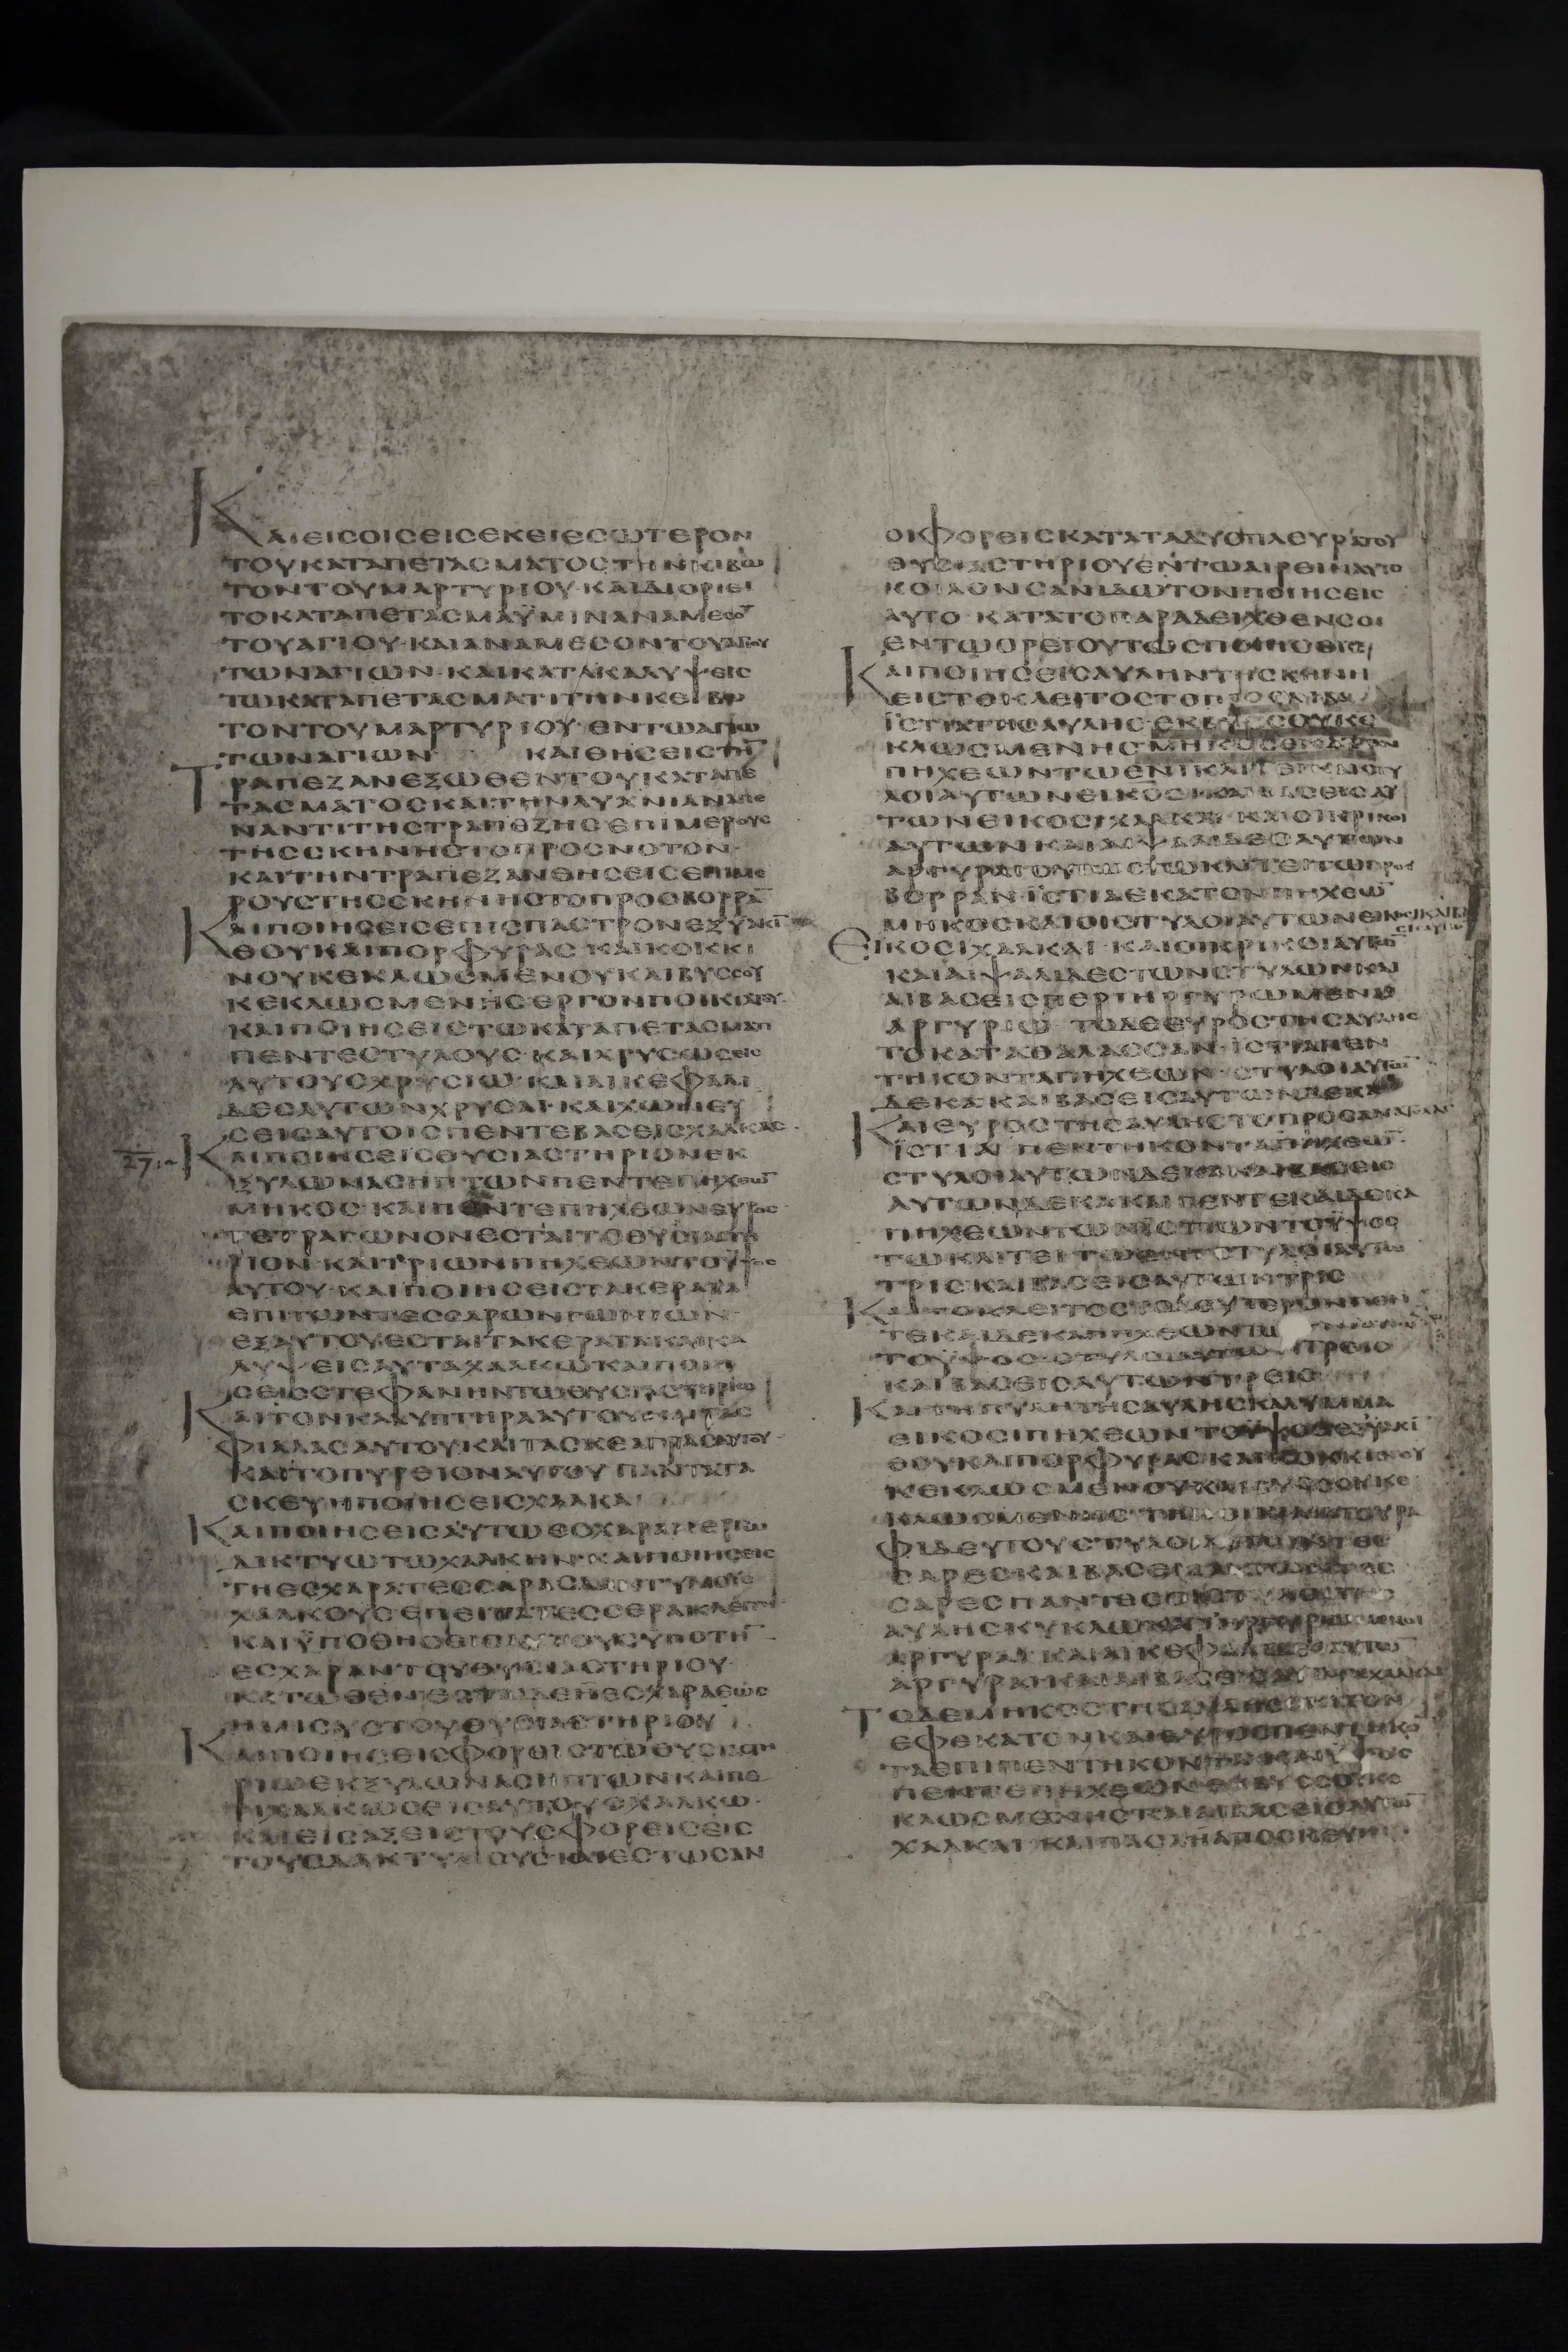 ΚΑΙΕΙΣΟΙΣΕΙΣΕΚΕΙΕΣΩΤΕΡΟΝ
ΤΟΥΚΑΤΑΠΕΤΑΣΜΑΤΟΣΤΗΝΚΙΒΩ
ΤΟΝΤΟΥΜΑΡΤΥΡΙΟΥ·ΚΑΙΔΙΟΡΙΕΙ
ΤΟΚΑΤΑΠΕΤΑΣΜΑΫΜΙΝΑΝΑΜΕΣΟ̅
ΤΟΥΑΓΙΟΥ·ΚΑΙΑΝΑΜΕΣΟΝΤΟΥΑΓΙΟΥ
ΤΩΝΑΓΙΩΝ·ΚΑΙΚΑΤΑΚΑΛΥΨΕΙΣ
ΤΩΚΑΤΑΠΕΤΑΣΜΑΤΙΤΗΝΚΕΙΒΩ
ΤΟΝΤΟΥΜΑΡΤΥΡΙΟΥ·ΕΝΤΩΑΓΙΩ
ΤΩΝΑΓΙΩΝ ΚΑΙΘΗΣΕΙΣΤΗ̅
ΤΡΑΠΕΖΑΝΕΞΩΘΕΝΤΟΥΚΑΤΑΠΕ
ΤΑΣΜΑΤΟΣΚΑΙΤΗΝΛΥΧΝΙΑΝΑΠΕ
ΝΑΝΤΙΤΗΣΤΡΑΠΕΖΗΣΕΠΙΜΕΡΟΥΣ
ΤΗΣΣΚΗΝΗΣΤΟΠΡΟΣΝΟΤΟΝ·
ΚΑΙΤΗΝΤΡΑΠΕΖΑΝΘΗΣΕΙΣΕΠΙΜΕ
ΡΟΥΣΤΗΣΣΚΗΝΗΣΤΟΠΡΟΣΒΟΡΡΑ̅
ΚΑΙΠΟΙΗΣΕΙΣΕΠΙΣΠΑΣΤΡΟΝΕΞΥΑΚΙ̅
ΘΟΥΚΑΙΠΟΡΦΥΡΑΣ·ΚΑΙΚΟΚΚΙ
ΝΟΥΚΕΚΛΩΣΜΕΝΟΥΚΑΙΒΥΣΣΟΥ
ΚΕΚΛΩΣΜΕΝΗΣΕΡΓΟΝΠΟΙΚΙΛΤΟΥ·
ΚΑΙΠΟΙΗΣΕΙΣΤΩΚΑΤΑΠΕΤΑΣΜΑΤΙ
ΠΕΝΤΕΣΤΥΛΟΥΣ·ΚΑΙΧΡΥΣΩΣΕΙΣ
ΑΥΤΟΥΣΧΡΥΣΙΩ·ΚΑΙΑΙΚΕΦΑΛΙ
ΔΕΣΑΥΤΩΝΧΡΥΣΑΙ·ΚΑΙΧΩΝΕΥ
ΣΕΙΣΑΥΤΟΙΣΠΕΝΤΕΒΑΣΕΙΣΧΑΛΚΑΣ·
27:1 ΚΑΙΠΟΙΗΣΕΙΣΘΥΣΙΑΣΤΗΡΙΟΝΕΚ
ΞΥΛΩΝΑΣΗΠΤΩΝΠΕΝΤΕΠΗΧΕΩ̅
ΜΗΚΟΣ·ΚΑΙΠΕΝΤΕΠΗΧΕΩΝΕΥΡΟΣ·
ΤΕΤΡΑΓΩΝΟΝΕΣΤΑΙΤΟΘΥΣΙΑΣΤΗ
ΡΙΟΝ·ΚΑΙΤΡΙΩΝΠΗΧΕΩΝΤΟΫΨΟΣ
ΑΥΤΟΥ·ΚΑΙΠΟΙΗΣΕΙΣΤΑΚΕΡΑΤΑ
ΕΠΙΤΩΝΤΕΣΣΑΡΩΝΓΩΝΙΩΝ·
ΕΞΑΥΤΟΥΕΣΤΑΙΤΑΚΕΡΑΤΑΚΑΙΚΑ
ΛΥΨΕΙΣΑΥΤΑΧΑΛΚΩΚΑΙΠΟΙΗ
ΣΕΙΣΣΤΕΦΑΝΗΝΤΩΘΥΣΙΑΣΤΗΡΙΩ
ΚΑΙΤΟΝΚΑΛΥΠΤΗΡΑΑΥΤΟΥΚΑΙΤΑΣ
ΦΙΑΛΑΣΑΥΤΟΥΚΑΙΤΑΣΚΕΑΓΡΑΣΑΥΤΟΥ·
ΚΑΙΤΟΠΥΡΕΙΟΝΑΥΤΟΥ ΠΑΝΤΑΤΑ
ΣΚΕΥΗΠΟΙΗΣΕΙΣΧΑΛΚΑ
ΚΑΙΠΟΙΗΣΕΙΣΑΥΤΩΕΣΧΑΡΑΝΕΡΓΩ
ΔΙΚΤΥΩΤΩΧΑΛΚΗΝ·ΚΑΙΠΟΙΗΣΕΙΣ
ΤΗΕΣΧΑΡΑΤΕΣΣΑΡΑΣΔΑΚΤΥΛΙΟΥΣ
ΧΑΛΚΟΥΣΕΠΕΙΤΑΤΕΣΣΕΡΑΚΛΕΙΤΗ·
ΚΑΙΫΠΟΘΗΣΕΙΣΑΥΤΟΥΣΥΠΟΤΗ̅
ΕΣΧΑΡΑΝΤΟΥΘΥΣΙΑΣΤΗΡΙΟΥ·
ΚΑΤΩΘΕΝΕΣΤΑΙΔΕΗΕΣΧΑΡΑΕΩΣ
ΗΜΙΣΥΣΤΟΥΘΥΣΙΑΣΤΗΡΙΟΥ
ΚΑΙΠΟΙΗΣΕΙΣΦΟΡΕΙΣΤΩΘΥΣΙΑΣΤΗ
ΡΙΩΕΚΞΥΛΩΝΑΣΗΠΤΩΝΚΑΙΠΕ
ΡΙΧΑΛΚΩΣΕΙΣΑΥΤΟΥΣΧΑΛΚΩ·
ΚΑΙΕΙΣΑΞΕΙΣΤΟΥΣΦΟΡΕΙΣΕΙΣ
ΤΟΥΣΔΑΚΤΥΛΙΟΥΣΚΑΙΕΣΤΩΣΑΝ
ΟΙΦΟΡΕΙΣΚΑΤΑΤΑΔΥΟΠΛΕΥΡΑΤΟΥ
ΘΥΣΙΑΣΤΗΡΙΟΥΕΝΤΩΑΙΡΕΙΝΑΥΤΟ
ΚΟΙΛΟΝΣΑΝΙΔΩΤΟΝΠΟΙΗΣΕΙΣ
ΑΥΤΟ·ΚΑΤΑΤΟΠΑΡΑΔΕΙΧΘΕΝΣΟΙ
ΕΝΤΩΟΡΕΙΟΥΤΩΣΠΟΙΗΣΕΙΣ
ΚΑΙΠΟΙΗΣΕΙΣΑΥΛΗΝΤΗΣΚΗΝΗ
ΕΙΣΤΟΚΛΕΙΤΟΣΤΟΠΡΟΣΛΙΒΑ
ΪΣΤΙΑΤΗΣΑΥΛΗΣ·ΕΚΒΥΣΣΟΥΚΕ
ΚΛΩΣΜΕΝΗΣΜΗΚΟΣ
ΠΗΧΕΩΝΤΩΕΝΙΚΛΙΤΕΙΚΑΙΟΙΣΤΥ
ΛΟΙΑΥΤΩΝΕΙΚΟΣΙΚΑΙΒΑΣΕΙΣΑΥ
ΤΩΝΕΙΚΟΣΙΧΑΛΚΑΙ·ΚΑΙΟΙΚΡΙΚΟΙ
ΑΥΤΩΝΚΑΙΑΙΨΑΛΙΔΕΣΑΥΤΩΝ
ΑΡΓΥΡΑΙΟΥΤΩΣΤΩΚΛΙΤΕΙΤΩΠΡΟΣ
ΒΟΡΡΑΝ·ΪΣΤΙΑΕΚΑΤΟΝΠΗΧΕΩ̅
ΜΗΚΟΣΚΑΙΟΙΣΤΥΛΟΙΑΥΤΩΝΕΙΚΟΣΙΚΑΙΒΑ
ΣΕΙΣΑΥΤΩ̅
ΕΙΚΟΣΙΧΑΛΚΑΙ·ΚΑΙΟΙΚΡΙΚΟΙΑΥΤΩ̅
ΚΑΙΑΙΨΑΛΙΔΕΣΤΩΝΣΤΥΛΩΝΚΑΙ
ΑΙΒΑΣΕΙΣΠΕΡΙΗΡΓΥΡΩΜΕΝΑΙ
ΑΡΓΥΡΙΩ ΤΟΔΕΕΥΡΟΣΤΗΣΑΥΛΗΣ
ΤΟΚΑΤΑΘΑΛΑΣΣΑΝ·ΪΣΤΙΑΠΕΝ
ΤΗΚΟΝΤΑΠΗΧΕΩΝ·ΣΤΥΛΟΙΑΥΤΩ̅
ΔΕΚΑ·ΚΑΙΒΑΣΕΙΣΑΥΤΩΝΔΕΚΑ
ΚΑΙΕΥΡΟΣΤΗΣΑΥΛΗΣΤΟΠΡΟΣΑΝΑΤΟΛΑΣ
ΪΣΤΙΑ ΠΕΝΤΗΚΟΝΤΑΠΗΧΕΩ̅·
ΣΤΥΛΟΙΑΥΤΩΝΔΕΚΑΚΑΙΒΑΣΕΙΣ
ΑΥΤΩΝΔΕΚΑΚΑΙΠΕΝΤΕΚΑΙΔΕΚΑ
ΠΗΧΕΩΝΤΩΝΪΣΤΙΩΝΤΟΫΨΟΣ
ΤΩΚΛΙΤΕΙΤΩΕΝΙΣΤΥΛΟΙΑΥΤΩ
ΤΡΙΣΚΑΙΒΑΣΕΙΣΑΥΤΩΝΤΡΙΣ
ΚΑΙΤΟΚΛΕΙΤΟΣΤΟΔΕΥΤΕΡΟΝΠΕΝ
ΤΕΚΑΙΔΕΚΑΠΗΧΕΩΝΤΩ
ΤΟΫΨΟΣ·ΣΤΥΛΟΙΑΥΤΩΝΤΡΕΙΣ
ΚΑΙΒΑΣΕΙΣΑΥΤΩΝΤΡΕΙΣ
ΚΑΙΤΗΠΥΛΗΤΗΣΑΥΛΗΣΚΑΛΥΜΜΑ
ΕΙΚΟΣΙΠΗΧΕΩΝΤΟΫΨΟΣΕΞΫΑΚΙ̅
ΘΟΥΚΑΙΠΟΡΦΥΡΑΣΚΑΙΚΟΚΚΙΝΟΥ
ΚΕΚΛΩΣΜΕΝΟΥΚΑΙΒΥΣΣΟΥΚΕ
ΚΛΩΣΜΕΝΗΣΤΗΠΟΙΚΙΛΙΑΤΟΥΡΑ
ΦΙΔΕΥΤΟΥΣΤΥΛΟΙΑΥΤΩΝΤΕΣ
ΣΑΡΕΣΚΑΙΒΑΣΕΙΣΑΥΤΩΝΤΕΣ
ΣΑΡΕΣΠΑΝΤΕΣΟΙΣΤΥΛΟΙΤΗΣ
ΑΥΛΗΣΚΥΚΛΩΚΑΤΗΡΓΥΡΩΜΕΝΟΙ
ΑΡΓΥΡΙΩΚΑΙΑΙΚΕΦΑΛΙΔΕΣΑΥΤΩ̅
ΑΡΓΥΡΑΙΚΑΙΑΙΒΑΣΕΙΣΑΥΤΩΝΧΑΛΚΑΙ
ΤΟΔΕΜΗΚΟΣΤΗΣΑΥΛΗΣΕΚΑΤΟΝ
ΕΦΕΚΑΤΟΝΚΑΙΕΥΡΟΣΠΕΝΤΗΚΟ̅
ΤΑΕΠΙΠΕΝΤΗΚΟΝΤΑΚΑΙΫΨΟΣ
ΠΕΝΤΕΠΗΧΕΩΝΕΚΒΥΣΣΟΥΚΕ
ΚΛΩΣΜΕΝΗΣΚΑΙΑΙΒΑΣΕΙΣΑΥΤΩ̅
ΧΑΛΚΑΙ·ΚΑΙΠΑΣΑΗΑΠΟΣΚΕΥΗ